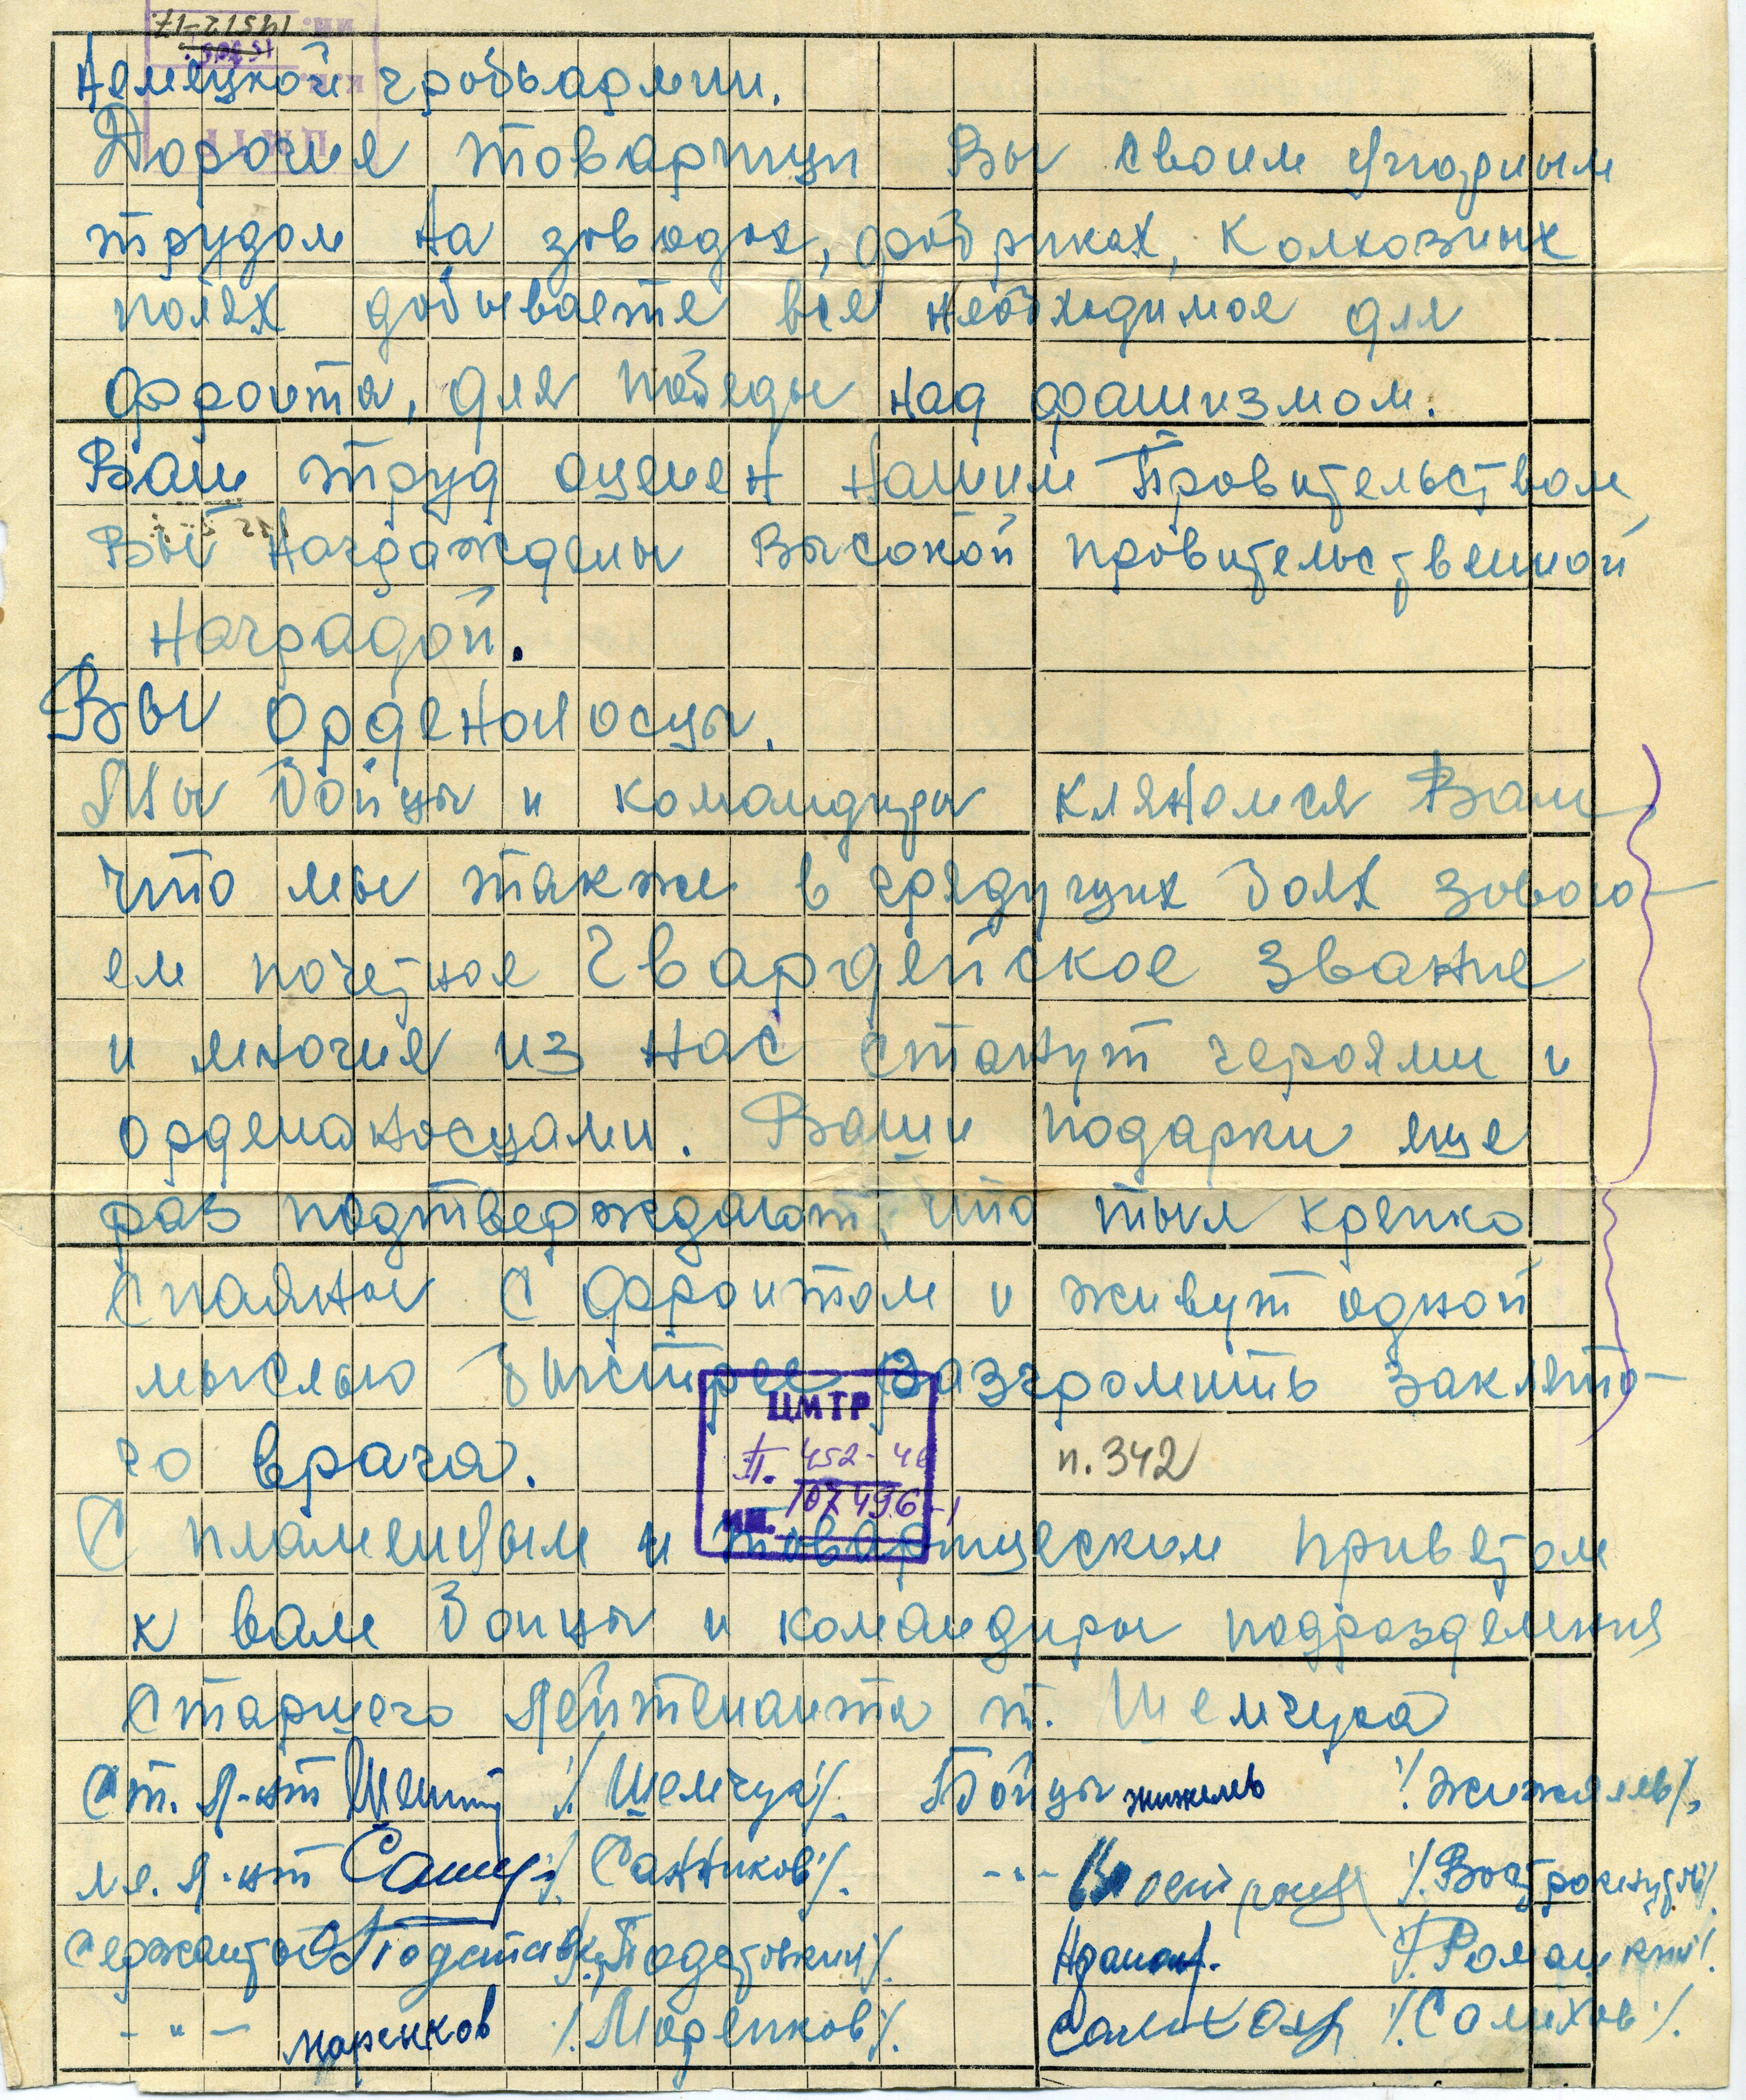 немецкой грабьармии.
Дорогие товарищи Вы своим упорным
трудом на заводах, фабриках, колхозных
полях добываете все необходимое для
фронта, для победы над фашизмом.
Ваш труд оценен нашим Правительством,
Вы награждены высокой правительственной
наградой.
Вы орденоносцы.
Мы бойцы и командиры клянемся Вам
что мы также в грядущих боях завою-
ем почетное Гвардейское звание
и многие из нас станут героями и
орденаносцами. Ваши подарки еще
раз подтверждают, что тыл крепко
спаяны с фронтом и живут одной
мыслью быстрее разгромить заклято-
го врага.
п. 342
ЦМТР
п. 452-46
ин. 107496-1
С пламенным и товарищеским приветом
к вам бойцы и командиры подразделения
Старшего лейтенанта т. Шемчука
Ст. л-нт /Шемчук/. Бойцы жижелев /Жижялев/.
мл. л-нт /Санников/. -"-
Сержанты
-"- маренков /Маренков/. /Салихов/.